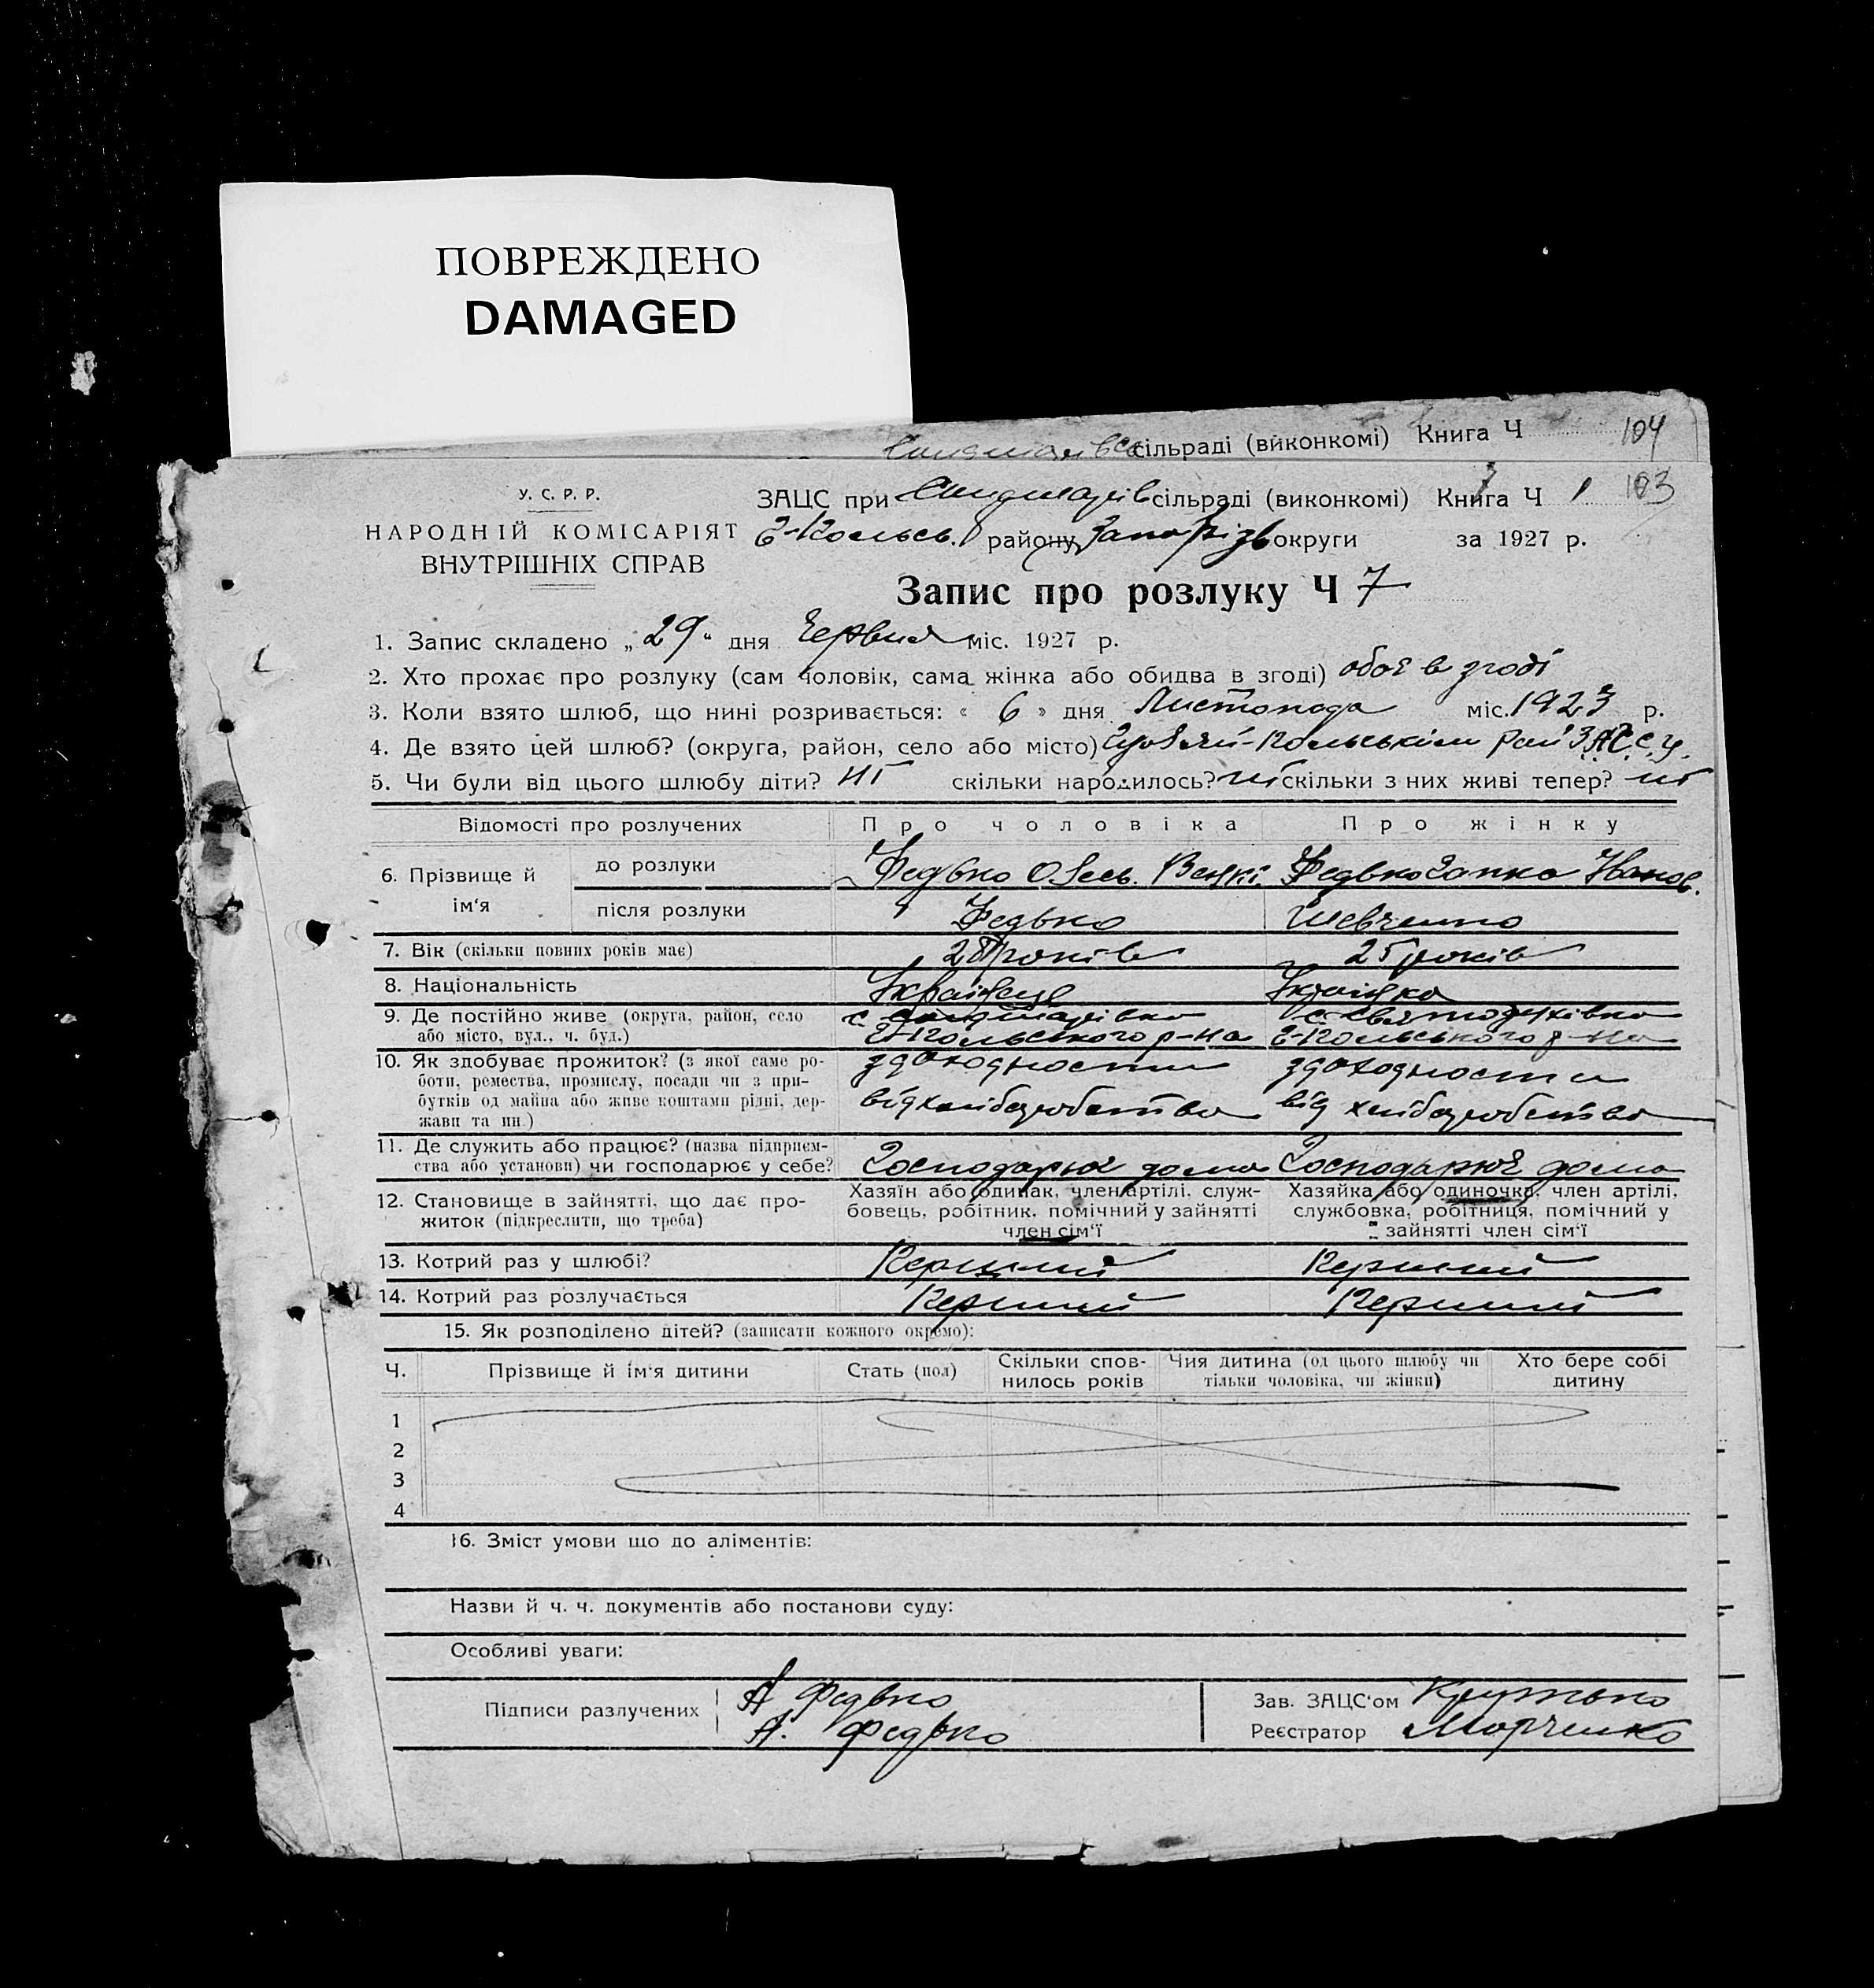 ПОВРЕЖДЕНО
DAMAGED
сільраді (виконкомі) Книга Ч 104
У. С. Р. Р.
НАРОДНІЙ КОМІСАРІЯТ
ВНУТРІШНІХ СПРАВ
ЗАЦС при сільраді (виконкомі) Книга Ч 1 103
району Запорізь округи за 1927 р.
Запис про розлуку Ч 7
1. Запис складено „ 29 " дня Червня міс. 1927 р.
2. Хто прохає про розлуку (сам чоловік, сама жінка або обидва в згоді) обоє в згоді
3. Коли взято шлюб, що нині розривається: « 6 » дня Листопада міс. 1923 р.
4. Де взято цей шлюб? (округа, район, село або місто)
5. Чи були від цього шлюбу діти? ні скільки народилось? ні скільки з них живі тепер? ні
Відомості про розлучених Про чоловіка Про жінку
6. Прізвище й ім'я
до розлуки Федько Федько Ганна Іванов.
після розлуки Федько Шевченко
7. Вік (скільки повних років має) років 25 років
8. Національність Українець Українка
9. Де постійно живе (округа, район, село
або місто, вул., ч. буд.)
р-на р-на
10. Як здобуває прожиток? (з якої саме ро-
боти, ремества, промислу, посади чи з при-
бутків од майна або живе коштами рідні, дер-
жави та ин.)
з доходности з доходности
від хліборобства від хліборобства
11. Де служить або працює? (назва підприєм-
ства або установи) чи господарює у себе?
Господарює дома Господарює дома
12. Становище в зайнятті, що дає про-
житок (підкреслити, що треба)
Хазяїн або одинак, член артілі, служ-
бовець, робітник, помічний у зайнятті
член сім'ї
Хазяйка або одиночка, член артілі,
службовка, робітниця, помічний у
зайнятті член сім'ї
13. Котрий раз у шлюбі? Перший Перший
14. Котрий раз розлучається Перший Перший
15. Як розподілено дітей? (записати кожного окремо):
Ч. Прізвище й ім'я дитини Стать (пол) Скільки спов-
нилось років Чия дитина (од цього шлюбу чи
тільки чоловіка, чи жінки) Хто бере собі
дитину
1
2
3
4
16. Зміст умови що до аліментів:
Назви й ч. ч. документів або постанови суду:
Особливі уваги:
Підписи разлучених
А Федько
А. Федько
Зав. ЗАЦС'ом
Реєстратор Марченко